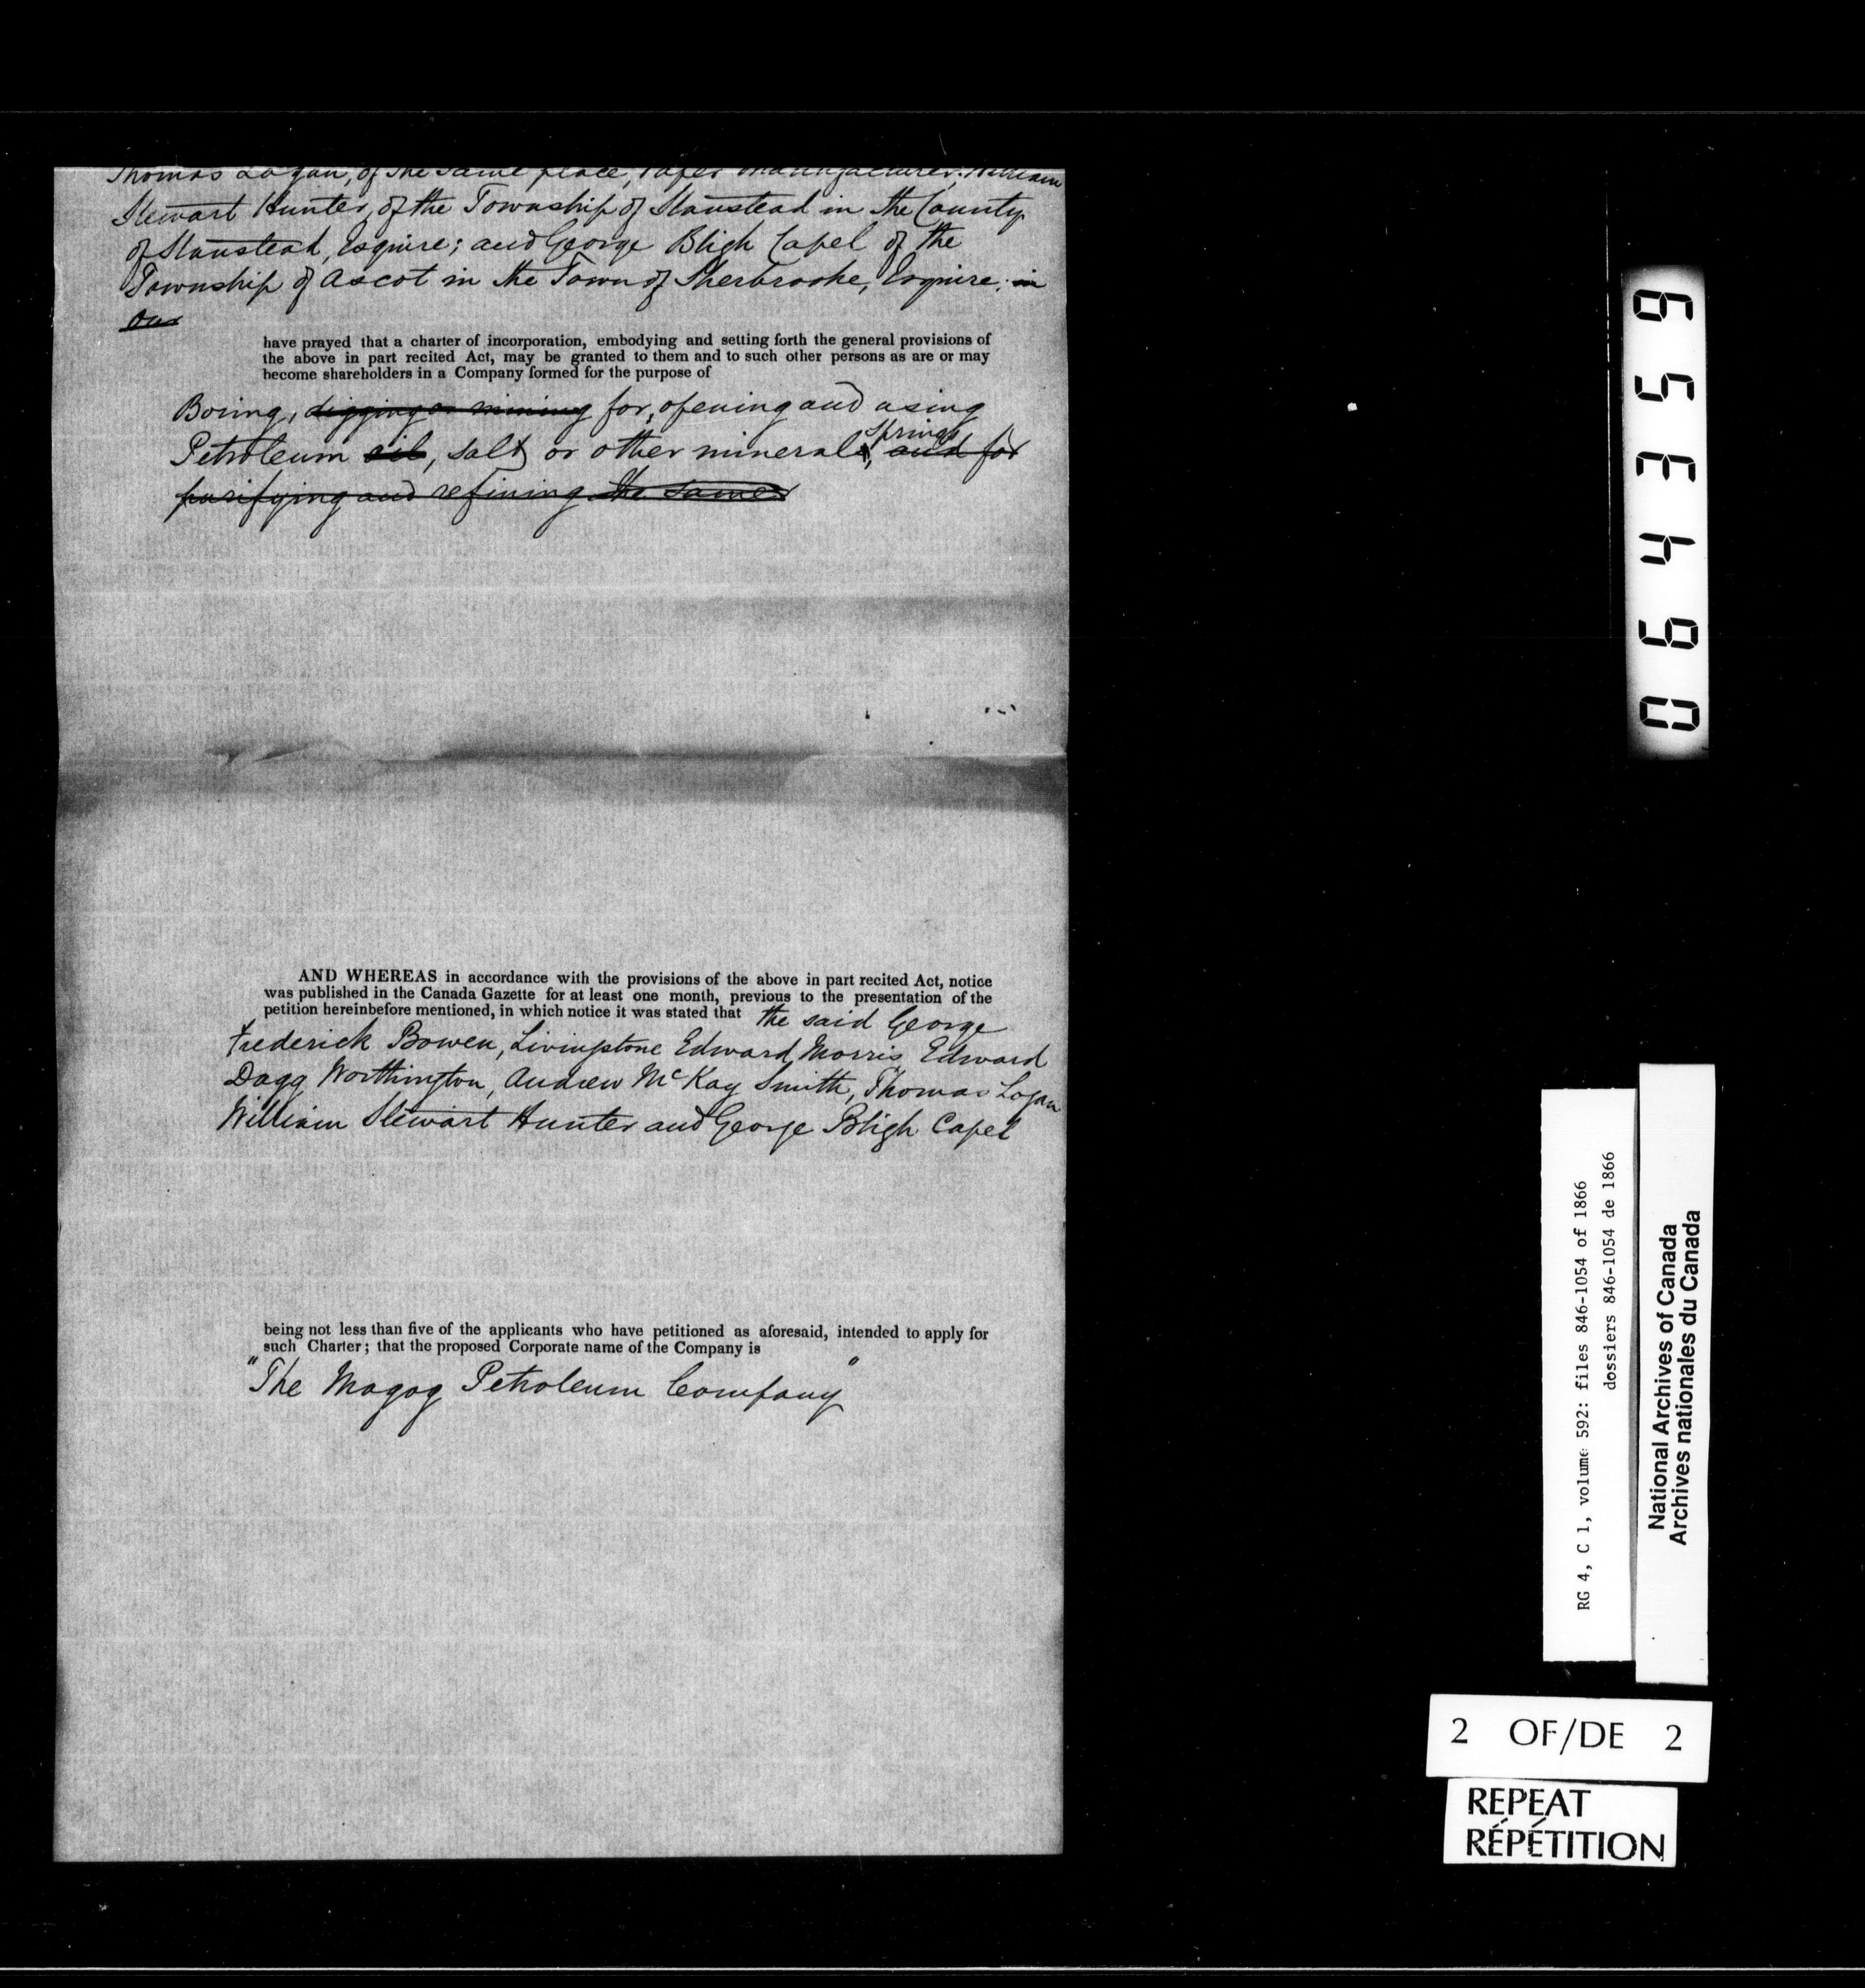 Thomas Logan, of the same place, Paper Manufacturer; William
Stewart Hunter, of the Township of Stanstead in the County
of Stanstead, Esquire; and George Bligh Capel of the
Township of Ascot in the Town of Sherbrooke, Esquire; in
our
have prayed that a charter of incorporation, embodying and setting forth the general provisions of
the above in part recited Act, may be granted to them and to such other persons as are or may
become shareholders in a Company formed for the purpose of
Boring, digging or mining for, opening and using
springs
Petroleum oil, salt or other minerals, and for
purifying and refining the same
AND WHEREAS in accordance with the provisions of the above in part recited Act, notice
was published in the Canada Gazette for at least one month, previous to the presentation of the
petition hereinbefore mentioned, in which notice it was stated that the said George
Frederick Bowen, Livingstone Edward Morris, Edward
Dagg Worthington, Andrew McKay Smith, Thomas Logan
William Stewart Hunter and George Bligh Capel
being not less than five of the applicants who have petitioned as aforesaid, intended to apply for
such Charter; that the proposed Corporate name of the Company is
"The Magog Petroleum Company"
064359
RG 4, C 1, volume 592: files 846-1054 of 1866
dossiers 846-1054 de 1866
National Archives of Canada
Archives nationales du Canada
2 OF/DE 2
REPEAT
RÉPÉTITION